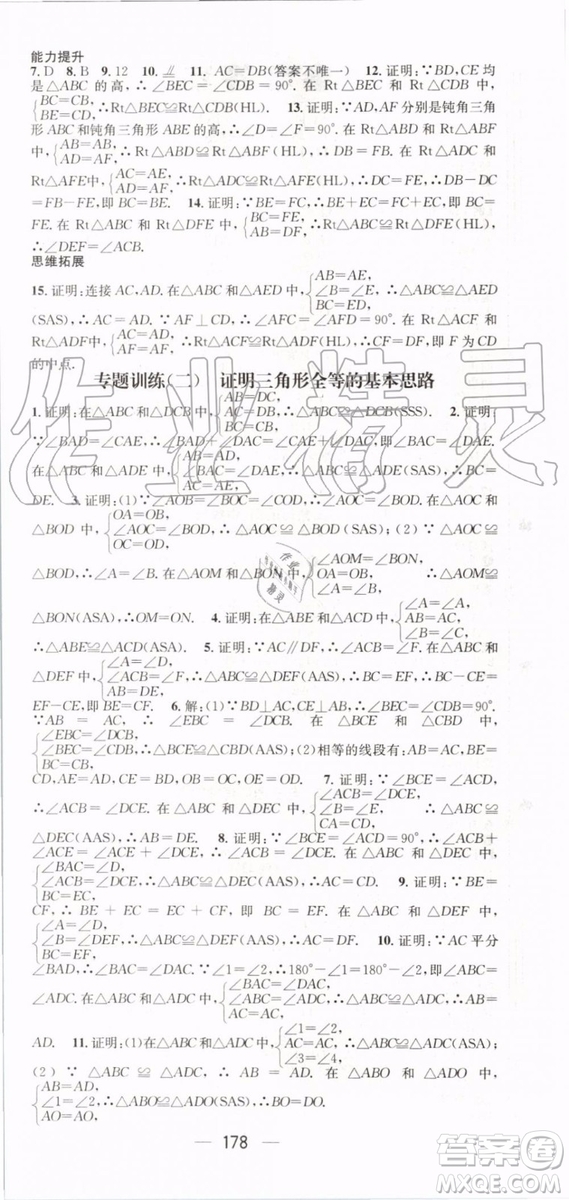 能力提升
7. D 8. B 9. 12 10. ⫽ 11. AC=DB(答案不唯一) 12. 证明:∵BD,CE均
是△ABC的高,∴∠BEC=∠CDB=90°. 在Rt△BEC和Rt△CDB中,
{BC=CB,
BE=CD, ∴Rt△BEC≌Rt△CDB(HL). 13. 证明:∵AD,AF分别是钝角三角
形ABC和钝角三角形ABE的高,∴∠D=∠F=90°. 在Rt△ABD和
Rt△ABF中,{AB=AB,
AD=AF, ∴Rt△ABD≌Rt△ABF(HL),∴DB=FB. 在Rt△ADC和
Rt△AFE中,{AC=AE,
AD=AF, ∴Rt△ADC≌Rt△AFE(HL),∴DC=FE,∴DB-DC
=FB-FE,即BC=BE. 14. 证明:∵BE=FC,∴BE+EC=FC+EC,即BC
=FE. 在Rt△ABC和Rt△DFE中,{BC=FE,
AB=DF, ∴Rt△ABC≌Rt△DFE(HL),
∴∠DEF=∠ACB.
思维拓展
15. 证明:连接AC,AD. 在△ABC和△AED中,{AB=AE,
∠B=∠E,
BC=ED, ∴△ABC≌△AED
(SAS),∴AC=AD. ∵AF⊥CD,∴∠AFC=∠AFD=90°. 在Rt△ACF和
Rt△ADF中,{AC=AD,
AF=AF, ∴Rt△ACF≌Rt△ADF(HL),∴CF=DF,即F为CD
的中点.
专题训练(二) 证明三角形全等的基本思路
1. 证明:在△ABC和△DCB中,{AB=DC,
AC=DB,
BC=CB, ∴△ABC≌△DCB(SSS). 2. 证明:
∵∠BAD=∠CAE,∴∠BAD+∠DAC=∠CAE+∠DAC,即∠BAC=∠DAE.
在△ABC和△ADE中,{AB=AD,
∠BAC=∠DAE,
AC=AE, ∴△ABC≌△ADE(SAS),∴BC=
DE. 3. 证明:(1)∵∠AOB=∠BOC=∠COD,∴∠AOC=∠BOD. 在△AOC和
△BOD中,{OA=OB,
∠AOC=∠BOD,
OC=OD, ∴△AOC≌△BOD(SAS);(2)∵△AOC≌
△BOD,∴∠A=∠B. 在△AOM和△BON中,{∠AOM=∠BON,
OA=OB,
∠A=∠B, ∴△AOM≌
△BON(ASA),∴OM=ON. 4. 证明:在△ABE和△ADC中,{∠A=∠A,
AB=AD,
∠B=∠D,
∴△ABE≌△ADC(ASA). 5. 证明:∵AC∥DF,∴∠ACB=∠F. 在△ABC和
△DEF中,{∠A=∠D,
AB=DE, ∴△ABC≌△DEF(AAS),∴BC=EF,∴BC-CE=
EF-CE,即BE=CF. 6. 解:(1)∵BD⊥AC,EC⊥AB,∴∠EBC=∠DCB=90°.
∵AB=AC,∴∠ABC=∠ACB. 在△BCE和△CBD中,
{∠EBC=∠DCB,
BC=CB, ∴△BCE≌△CBD(ASA);(2)相等的线段有:AB=AC,BE=
CD,AE=AD,CE=BD,OE=OD,OB=OC. 7. 证明:∵∠BCE=∠ACD,
∴∠BCE+∠ACE=∠ACD+∠ACE,即∠ACB=∠DCE. 在△ABC和△DEC
中,{∠B=∠E,
CA=CD, ∴△ABC≌
△DEC(AAS),∴AB=DE. 8. 证明:∵∠BCE=∠ACD=90°,∴∠ACB+
∠ACE=∠ACE+∠DCE,∴∠ACB=∠DCE. 在△ABC和△DEC中,
{∠BAC=∠D,
BC=EC, ∴△ABC≌△DEC(AAS),∴AC=CD. 9. 证明:∵BE=
CF,∴BE+EC=EC+CF,即BC=EF. 在△ABC和△DEF中,
{∠A=∠D,
∠B=∠DEF,
BC=EF, ∴△ABC≌△DEF(AAS),∴AC=DF. 10. 证明:∵AC平分
∠BAD,∴∠BAC=∠DAC. ∵∠1=∠2,∴180°-∠1=180°-∠2,即∠ABC=
∠ADC. 在△ABC和△ADC中,{∠BAC=∠DAC,
∠ABC=∠ADC,
AC=AC, ∴△ABC≌△ADC(AAS),∴AB=
AD. 11. 证明:(1)在△ABC和△ADC中,{∠1=∠2,
AC=AC,
∠3=∠4, ∴△ABC≌△ADC(ASA);
(2)∵△ABC≌△ADC,∴AB=AD. 在△ABO和△ADO中,
{AB=AD,
∠1=∠2,
AO=AO, ∴△ABO≌△ADO(SAS),∴BO=DO.
— 178 —
作业精灵
答案圈
MXQE.COM